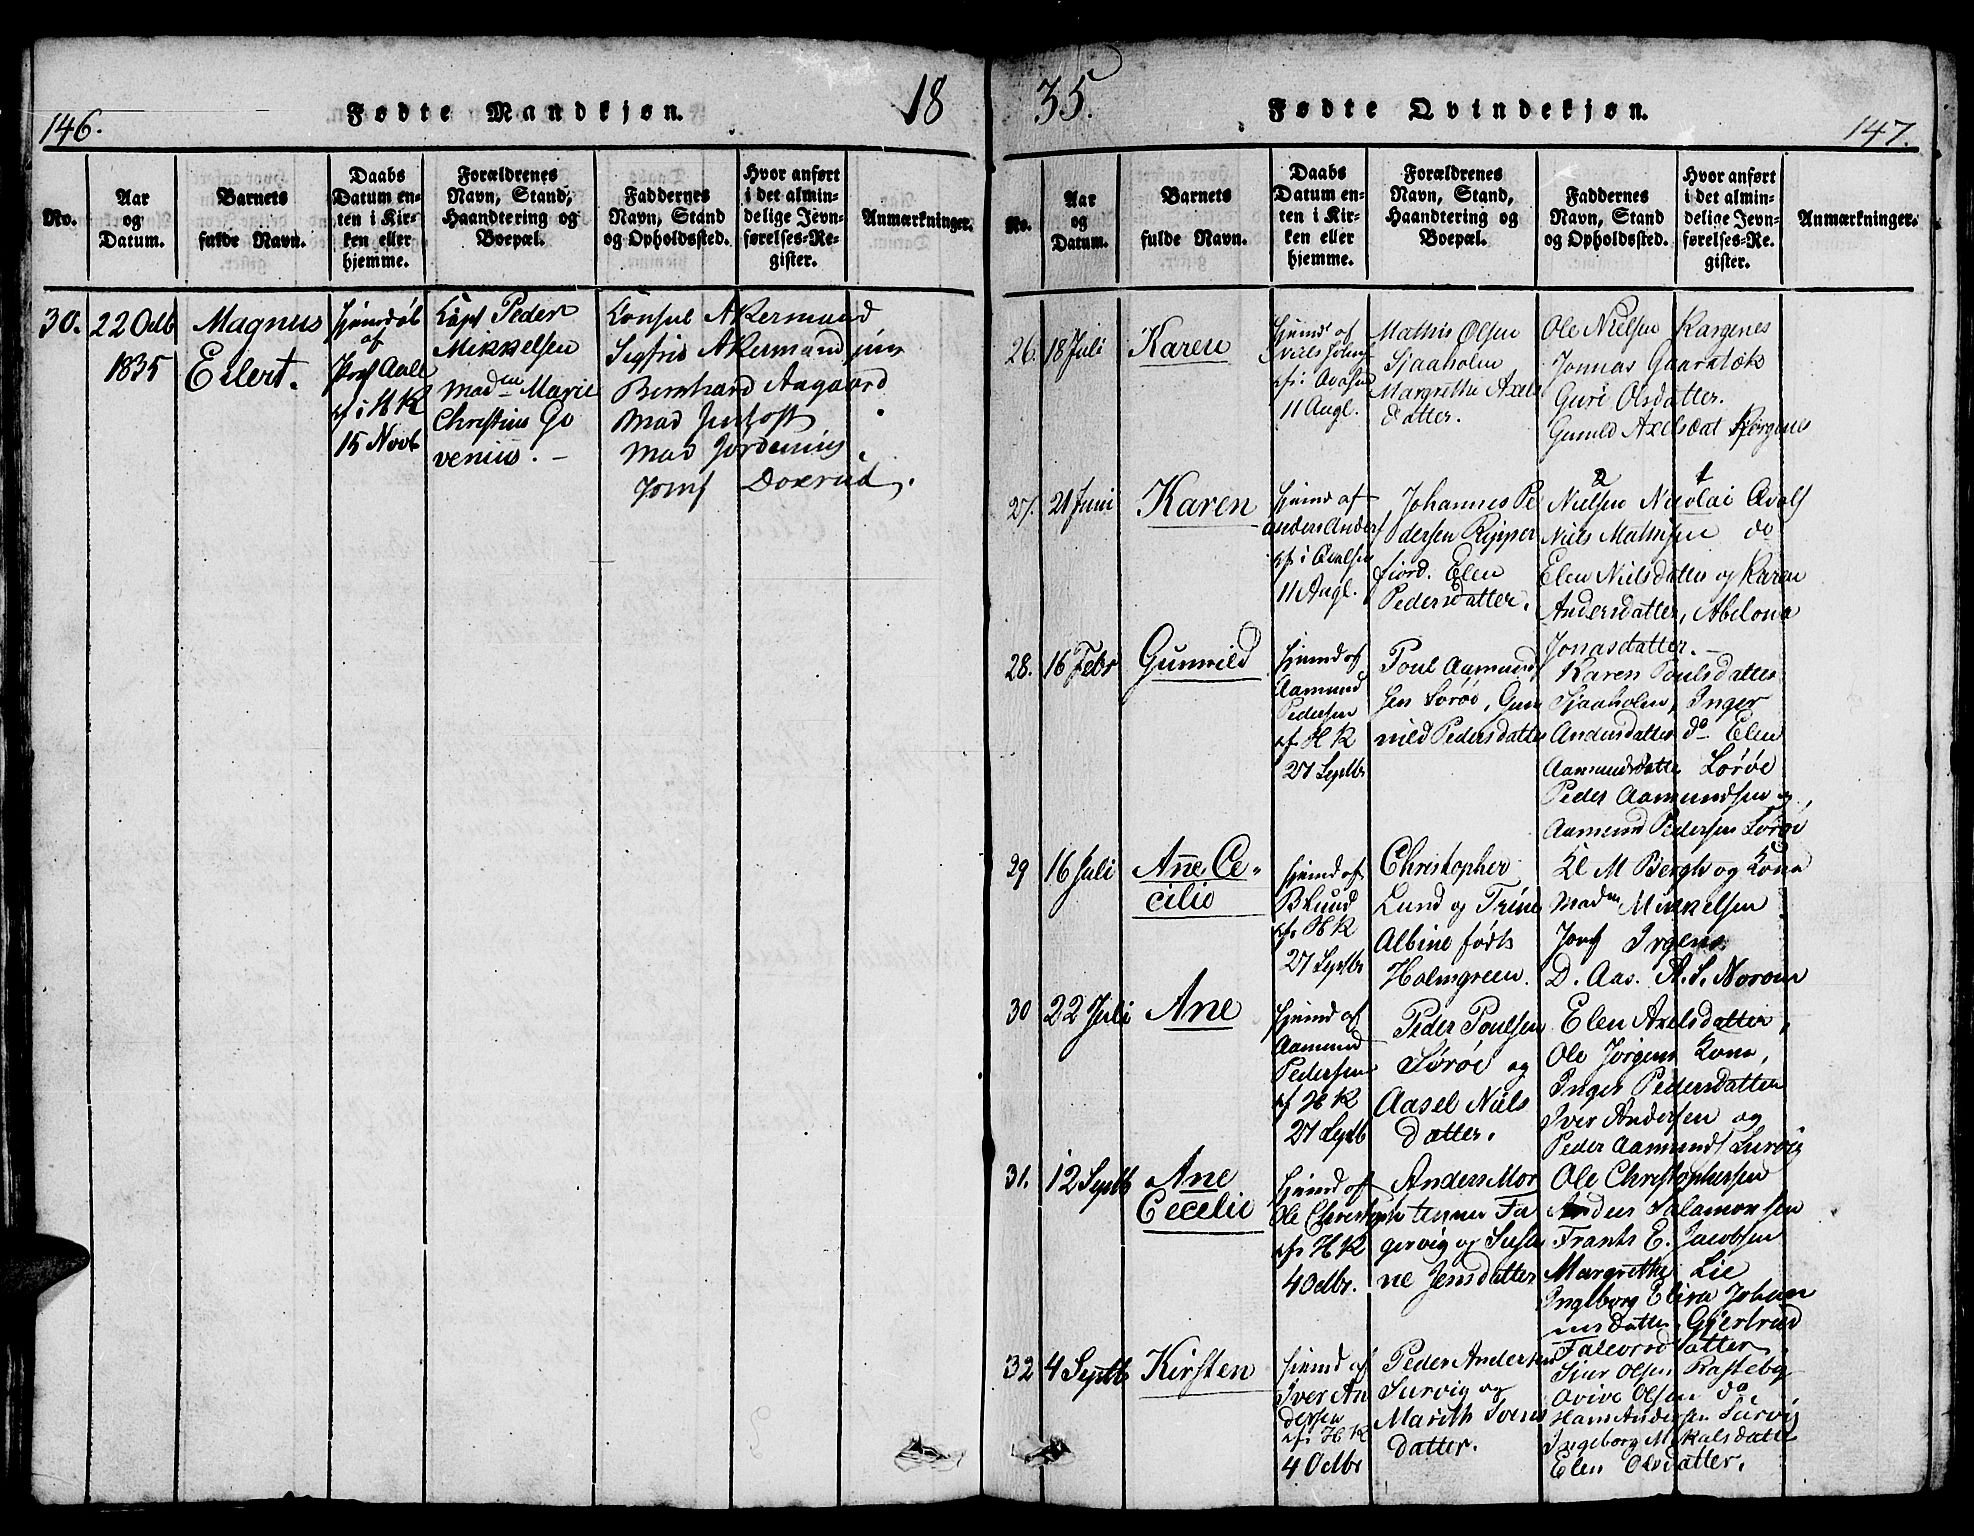 146.
Fødte Mandkjøn.
18
No.
Aar og Datum.
Barnets fulde Navn.
Daabs Datum enten i Kirken eller hjemme.
Forældrenes Navn, Stand, Haandtering og Boepæl.
Faddernes Navn, Stand og Opholdssted.
Hvor anført i det almindelige Jevnførelses-Register.
Anmærkninger.
30.
22 Octb
1835
Magnus
Eilert.
Hjemdøb
af
Prof Aall
cf i HK
15 Novb
Capt Peder
Mikkelsen
Madm Marie
Christine Go
venius. -
Consul Akermand
Sigfrid Akermand jun
Bernhard Aagaard
Mad
Mad
Jomf Doxrud.
35.
Fødte Qvindekjøn.
147.
No.
Aar og Datum.
Barnets fulde Navn.
Daabs Datum enten i Kirken eller hjemme.
Forældrenes Navn, Stand, Haandtering og Boepæl.
Faddernes Navn, Stand og Opholdssted.
Hvor anført i det almindelige Jevnførelses-Register.
Anmærkninger.
26.
18 Juli
Karen
Hjemd af
11 Augt.
Mathis Olsen
Sjaaholm
Margrethe Axels
datter.
Ole Nielsen Kargenes
Jonnas
Guri Olsdatter.
Gunild Axelsdat
27.
21 Juni
Karen
Hjemd af
Anders Anders
cf i Qvalsund
11 Augt.
Johannes Pe
dersen Ripper
fiord. Elen
Pedersdatter.
2 1
Nielsen Nicolai Qvals
Niels Mathisen do
Elen Nielsdatter og Karen
Andersdatter, Abelona
Jonasdatter. -
28.
16 Febr
Gunnild
Hjemd af
Aamund
Pedersen
cf. HK
27 Septbr
Poul Aamund
sen Sørøe, Gun
nild Pedersdatter
Karen Poulsdatter
Sjaaholm, Inger
Andersdatter do Elen
Aamundsdatter Sørøe
Peder Aamundsen og
Aamund Pedersen Sørøe
29
16 Juli
Ane Ce-
cilie
Hjemd af
B Lund
cf. HK
27 Septbr
Christopher
Lund og Trine
Albine født
Holmgreen.
Kl M Bergh og Kone
Madm Mikkelsen
Jomf Irgens
D. Aas. A. S. Norom
30
22 Juli
Ane
Hjemd af
Aamund
Pedersen
cf HK
27 Septb
Peder Poulsen
Sørøe og
Aasel Niels
datter.
Elen Axelsdatter,
Ole Jørgens Kone,
Inger Pedersdatter
Iver Andersen og
Peder Aamunds Survig
31.
12 Septb
Ane
Cecelie
Hjemd af
Ole Christoph
cf. HK
4 Octbr.
Anders Mor
tensen Fa
gervig og Susen
ne Jensdatter
Ole Christophersen
Anders Salamonsen
Frants E. Jacobsen
Margrethe Lie
Ingeborg Elisa Johan
nesdatter, Gjertrud
Falevrodatter.
32
4 Septb
Kirsten
Hjemd af
Iver An
dersen
cf. HK
4 Octbr
Peder Andersen
Survig og
Marith Svens
datter.
Siur Olsen Rasteby
Ovive Olsen do
Hans Andersen Survig
Ingeborg Mikalsdatter
Elen Olsdatter.